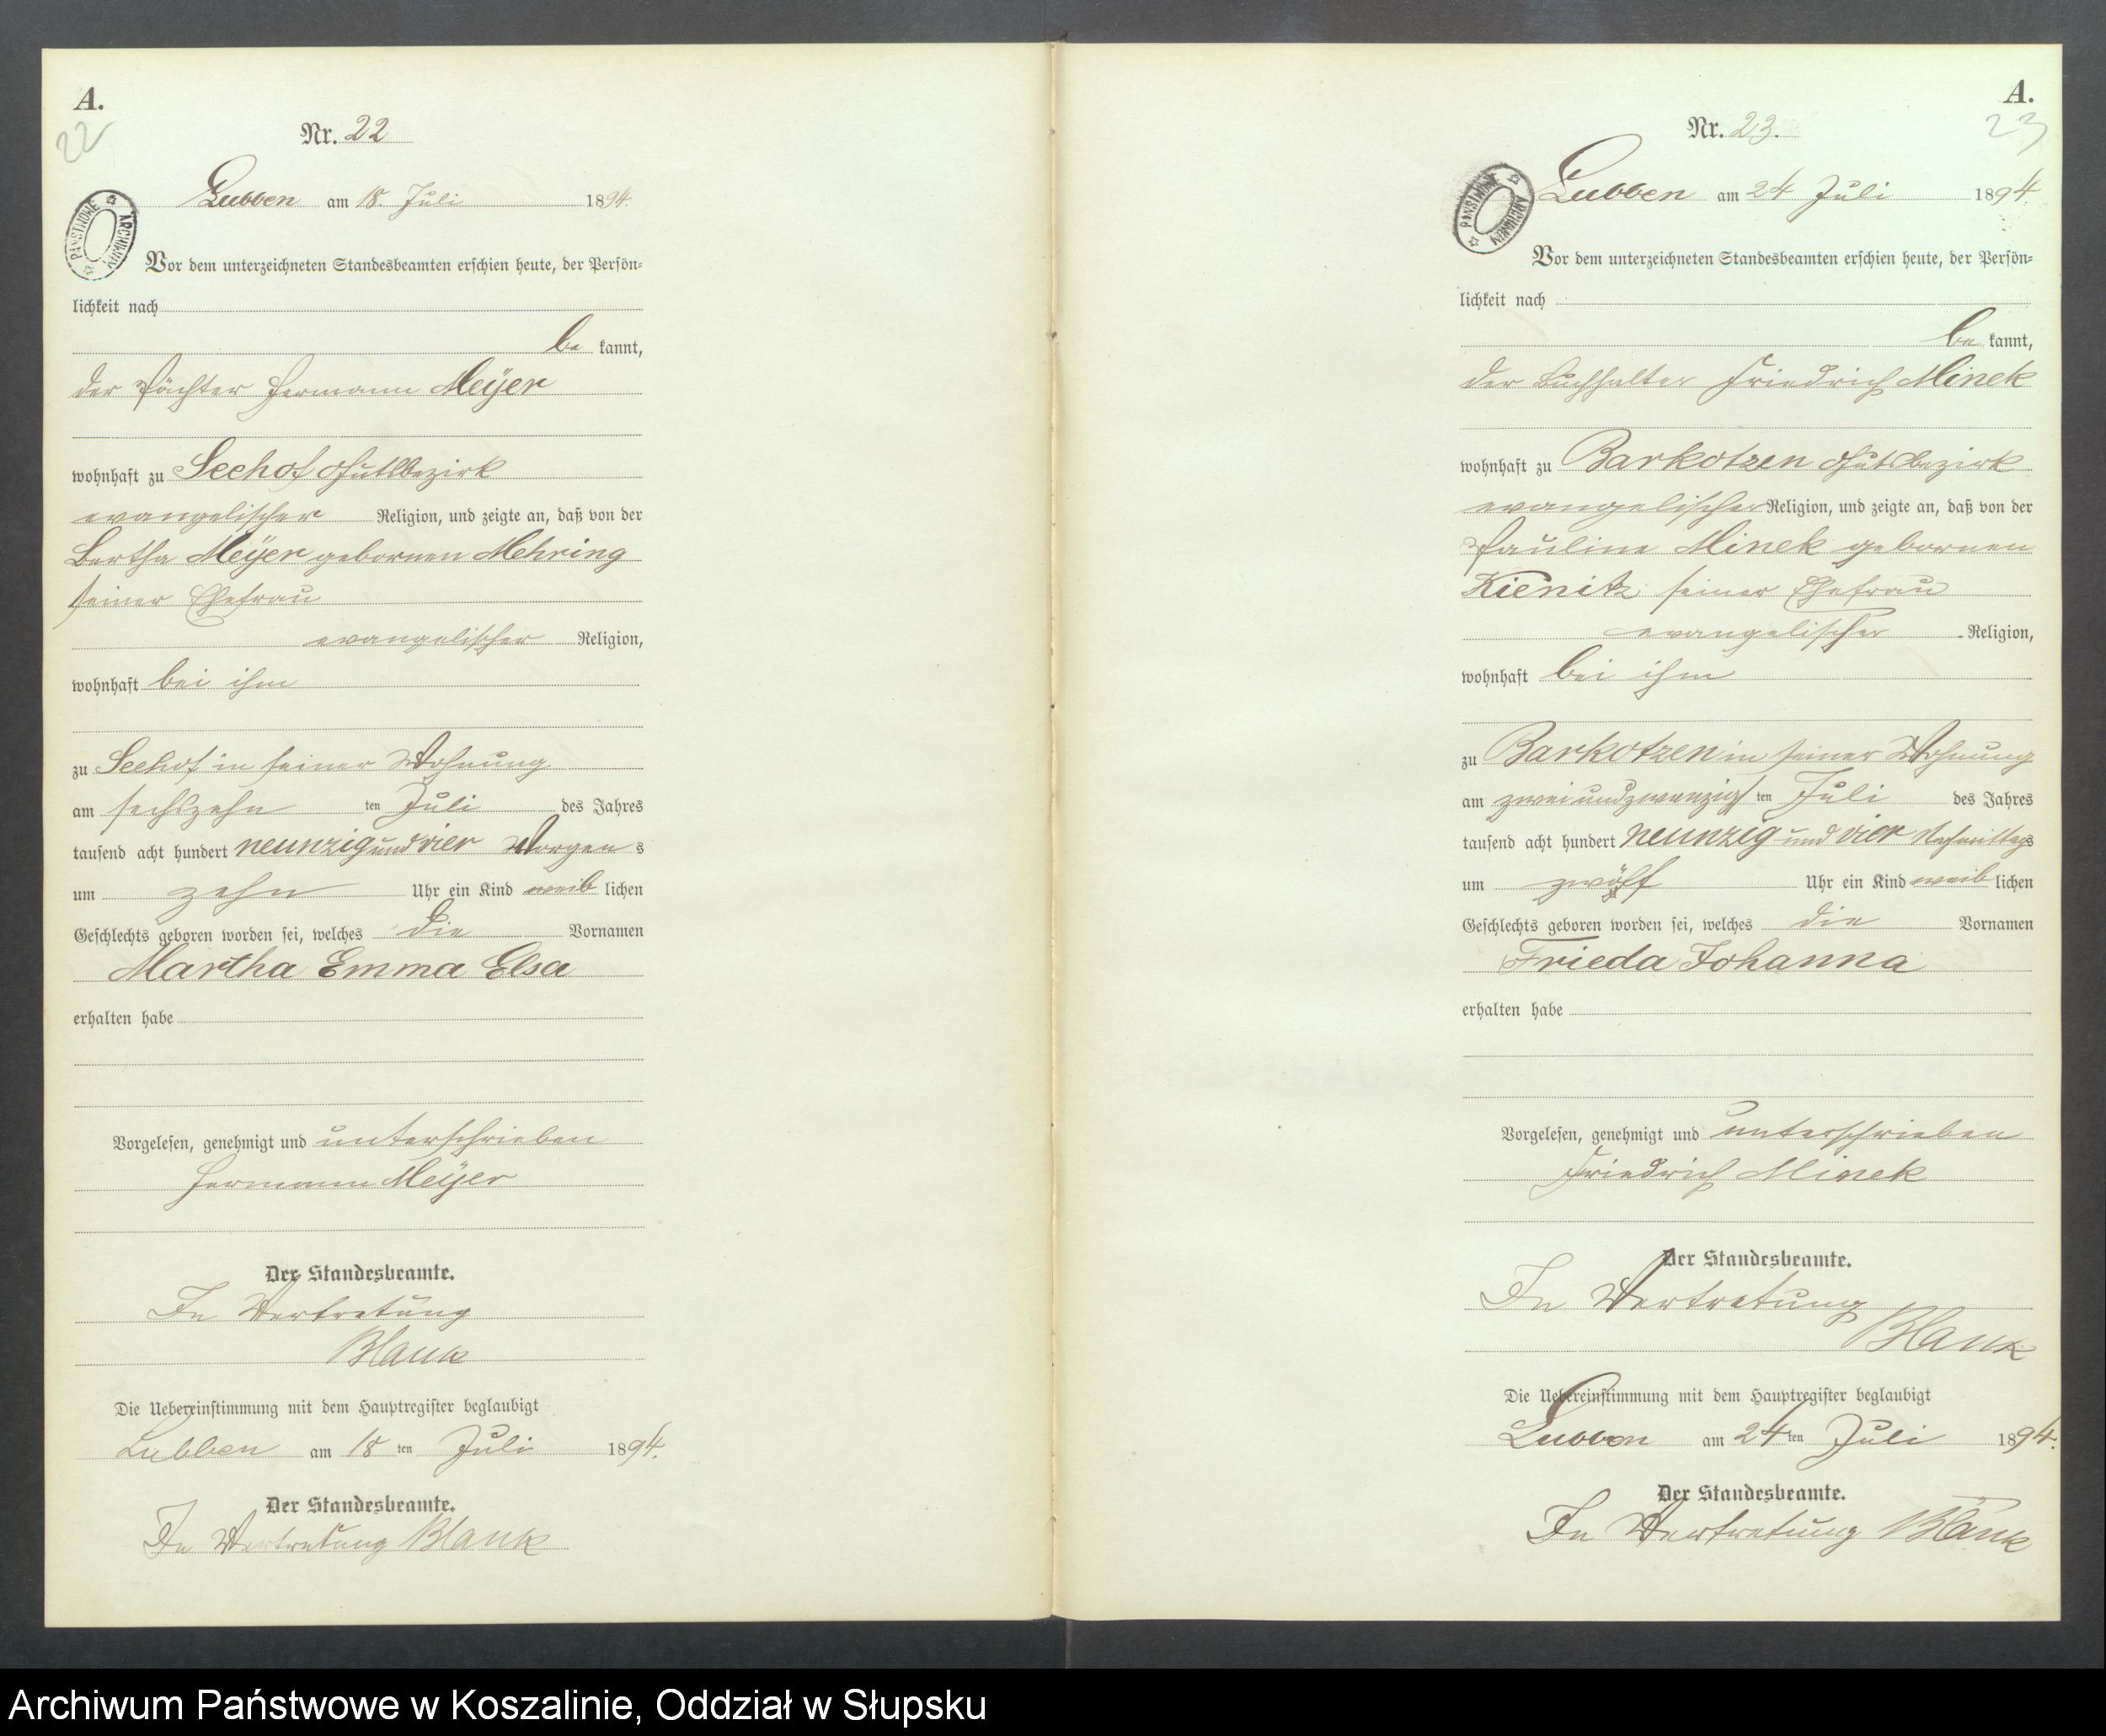 A.
22
Nr. 22
Lubben am 18. Juli 1894.
ARCHIWUM PAŃSTWOWE
Vor dem unterzeichneten Standesbeamten erschien heute, der Persön-
lichkeit nach
be kannt,
der Pächter Hermann Meÿer
wohnhaft zu Seehof Gutsbezirk
evangelischer Religion, und zeigte an, daß von der
Bertha Meÿer gebornen Mehring
seiner Ehefrau
evangelischer Religion,
wohnhaft bei ihm
zu Seehof in seiner Wohnung
am sechszehn ten Juli des Jahres
tausend acht hundert neunzig und vier Morgen s
um zehn Uhr ein Kind weib lichen
Geschlechts geboren worden sei, welches die Vornamen
Martha Emma Elsa
erhalten habe
Vorgelesen, genehmigt und unterschrieben
Hermann Meÿer
Der Standesbeamte.
In Vertretung
Blank
Die Uebereinstimmung mit dem Hauptregister beglaubigt
Lubben am 18 ten Juli 1894.
Der Standesbeamte.
In Vertretung Blank
A.
23
Nr. 23.
Lubben am 24 Juli 1894
ARCHIWUM PAŃSTWOWE
Vor dem unterzeichneten Standesbeamten erschien heute, der Persön-
lichkeit nach
be kannt,
der Buchhalter Friedrich Minek
wohnhaft zu Barkotzen Gutsbezirk
evangelischer Religion, und zeigte an, daß von der
Pauline Minek gebornen
Kienitz seiner Ehefrau
evangelischer Religion,
wohnhaft bei ihm
zu Barkotzen in seiner Wohnung
am zweiundzwanzigs ten Juli des Jahres
tausend acht hundert neunzig und vier Nachmittags
um zwölf Uhr ein Kind weib lichen
Geschlechts geboren worden sei, welches die Vornamen
Frieda Johanna
erhalten habe
Vorgelesen, genehmigt und unterschrieben
Friedrich Minek
Der Standesbeamte.
In Vertretung
Blank
Die Uebereinstimmung mit dem Hauptregister beglaubigt
Lubben am 24 ten Juli 1894.
Der Standesbeamte.
In Vertretung Blank
Archiwum Państwowe w Koszalinie, Oddział w Słupsku